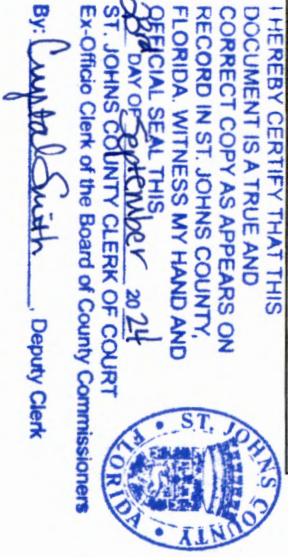 I HEREBY CERTIFY THAT THIS
DOCUMENT IS A TRUE AND
CORRECT COPY AS APPEARS ON
RECORD IN ST. JOHNS COUNTY,
FLORIDA. WITNESS MY HAND AND
OFFICIAL SEAL THIS
23rd DAY OF September 2024
ST. JOHNS COUNTY CLERK OF COURT
Ex-Officio Clerk of the Board of County Commissioners
By: Crystal Smith, Deputy Clerk
ST. JOHNS COUNTY
FLORIDA